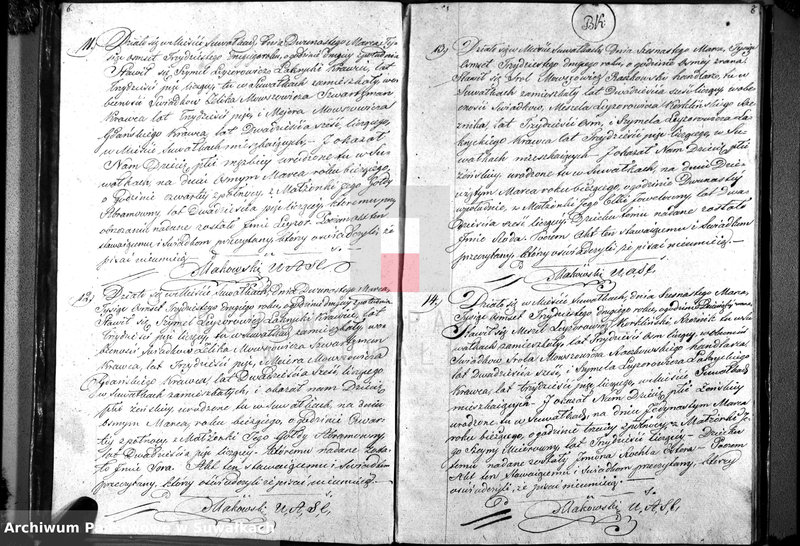 6.
11.) Działo się w Mieście Suwałkach, Dnia Dwunastego Marca, Ty-
siąc Ośmset Trzydziestego Drugiego roku, o godzinie drugiey z południa
Stawił się Szymel Leyzerowicz Zakrycki Krawiec, lat
trzydzieści pięć liczący, tu w Suwałkach zamieszkały, w o-
becności Świadków Mowszowicza
Krawca lat trzydzieści pięć, i Mejera Mowszowicza
Gdańskiego Krawca, lat Dwadzieścia sześć liczącego,
w Mieście Suwałkach mieszkających, I okazał
Nam Dziecię płci męzkiey urodzone tu w Su-
wałkach, na dniu Osmym Marca roku bieżącego
o godzinie czwartey z południa z Małżonki jego Goldy
Abramowny lat Dwadzieścia pięć liczącey, któremu przy
obrzezaniu nadane zostało Imie Leyzor. Poczem akt ten
stawaiącemu i Świadkom przeczytany, który oświadczyli że
pisać nieumieią.
Makowski U. A. S. C.
12.) Działo się w Mieście Suwałkach, Dnia Dwunastego Marca,
Tysiąc Ośmset Trzydziestego drugiego roku, o godzinie drugiey z południa
Stawił się Szymel Leyzorowicz Zakrycki Krawiec, lat
trzydzieści pięć liczący, tu w Suwałkach zamieszkały, w o-
becności Świadków Mowszowicza
Krawca, lat Trzydzieści pięć, i Mejera Mowszowicza
Gdańskiego Krawca, lat Dwadzieścia sześć liczącego
w Suwałkach zamieszkałych, i okazał nam Dziecię
płci żeńskiey urodzone tu w Suwałkach, na dniu
Osmym Marca, roku bieżącego, o godzinie Czwar-
tey z południa z Małżonki Jego Goldy Abramowny,
lat Dwadzieścia pięć liczącey; któremu nadane zosta-
ło Imie Sora. Akt ten stawaiącemu i Świadkom
przeczytany, który oświadczyli że pisać nieumieią.
Makowski U. A. S. C.
BK
8
13.) Działo się w Mieście Suwałkach, Dnia Szesnastego Marca, Tysiąc
Ośmset Trzydziestego drugiego roku, o godzinie Osmey zrana
Stawił się Srol Mowszowicz Raczkowski handlarz, tu w
Suwałkach zamieszkały lat Dwadzieścia sześć liczący w obe-
cności Świadków, Mejera Leyzorowicza
lat Trzydzieści Ośm, i Szymela Leyzorowicza Za-
kryckiego Krawca, lat Trzydzieści pięć liczącego, w Su-
wałkach mieszkaiących. I okazał Nam Dziecię płci
żeńskiey, urodzone tu w Suwałkach, na dniu Dzie-
wiątym Marca roku bieżącego, o godzinie Dwunastey
w południe, z Małżonki Jego lat dwa-
dzieścia sześć liczącey, Dziecku temu nadane zostało
Imie Poczem Akt ten stawaiącemu i Świadkom
przeczytany, który oświadczyli że pisać nieumieią.
Makowski U. A. S. C.
14.) Działo się w Mieście Suwałkach, dnia Szesnastego Marca,
Tysiąc Ośmset Trzydziestego drugiego roku, o godzinie
Stawił się Leyzorowicz tu w Su-
wałkach zamieszkały, lat Trzydzieści Ośm liczący, w obecności
Świadków, Srola Mowszowicza Raczkowskiego handlarza
lat Dwadzieścia sześć, i Szymela Leyzorowicza Zakryckiego
Krawca, lat trzydzieści pięć liczącego w Mieście Suwałkach
mieszkaiących. I okazał Nam Dziecię płci żeńskiey
urodzone tu w Suwałkach, na dniu Marca
roku bieżącego, o godzinie z południa z Małżonki Je-
go lat Trzydzieści liczącey. Dziecku
temu nadane zostały Imiona Rochla Poczem
Akt ten stawaiącemu i Świadkom przeczytany, którzy
oświadczyli, że pisać nieumieią.
Makowski U. A. S. C.
Archiwum Państwowe w Suwałkach